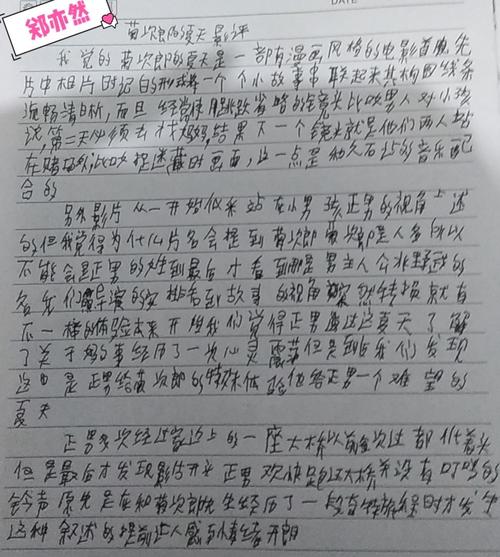 郑亦然
DATE
菊次郎的夏天影评
我觉的菊次郎的夏天是一部有漫画风格的电影首先
片中相片日记的形式将一个个小故事串联起来其构图线条
流畅清晰,而且经常使用跳跃省略的镜头比如男人对小孩
说,第二天必须去找妈妈,结果下一个镜头就是他们两人站
在赌场外,比如捉迷藏时画面,这一点是和久石让的音乐配
合的
另外影片从一开始似乎站在小男孩正男的视角上述
的但我觉得为什么片名会提到菊次郎菊次郎是人名所以
不能会是正男的姓到最后才看到哪是男主人公北野武的
名字们导演的安排看到故事的视角突然转换就有
不一样的体验本来开始我们觉得正男通过这夏天了解
了关于妈的事经历了一次心灵震荡但是到我们发现
这也是正男给菊次郎的特殊体验他给正男一个难望的
夏天
正男多次经过家边上的一座大桥以前每次过都低着头
但是最后才发现影片开头正男欢快跑过大桥并没有叮当的
铃声原先是在和菊次郎先生经历了一段奇特旅程时才发生
这种叙述的提前让人感与情绪开朗